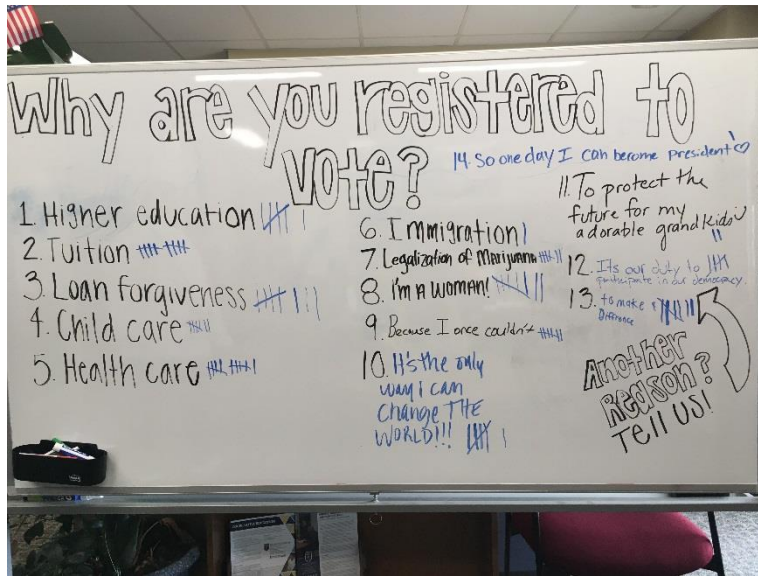 Why are you registered to
vote?
14. So one day I can become President!
1. Higher education
2. Tuition
3. Loan forgiveness
4. Child care
5. Health care
6. Immigration
7. Legalization of Marijuana
8. I'm A WOMAN!
9. Because I once couldn't
10. It's the only
way I can
change THE
WORLD!!!
11. To protect the
future for my
adorable grandkids
12. Its our duty to
participate in our democracy.
13. to make a
Difference
Another
Reason?
TELL US!